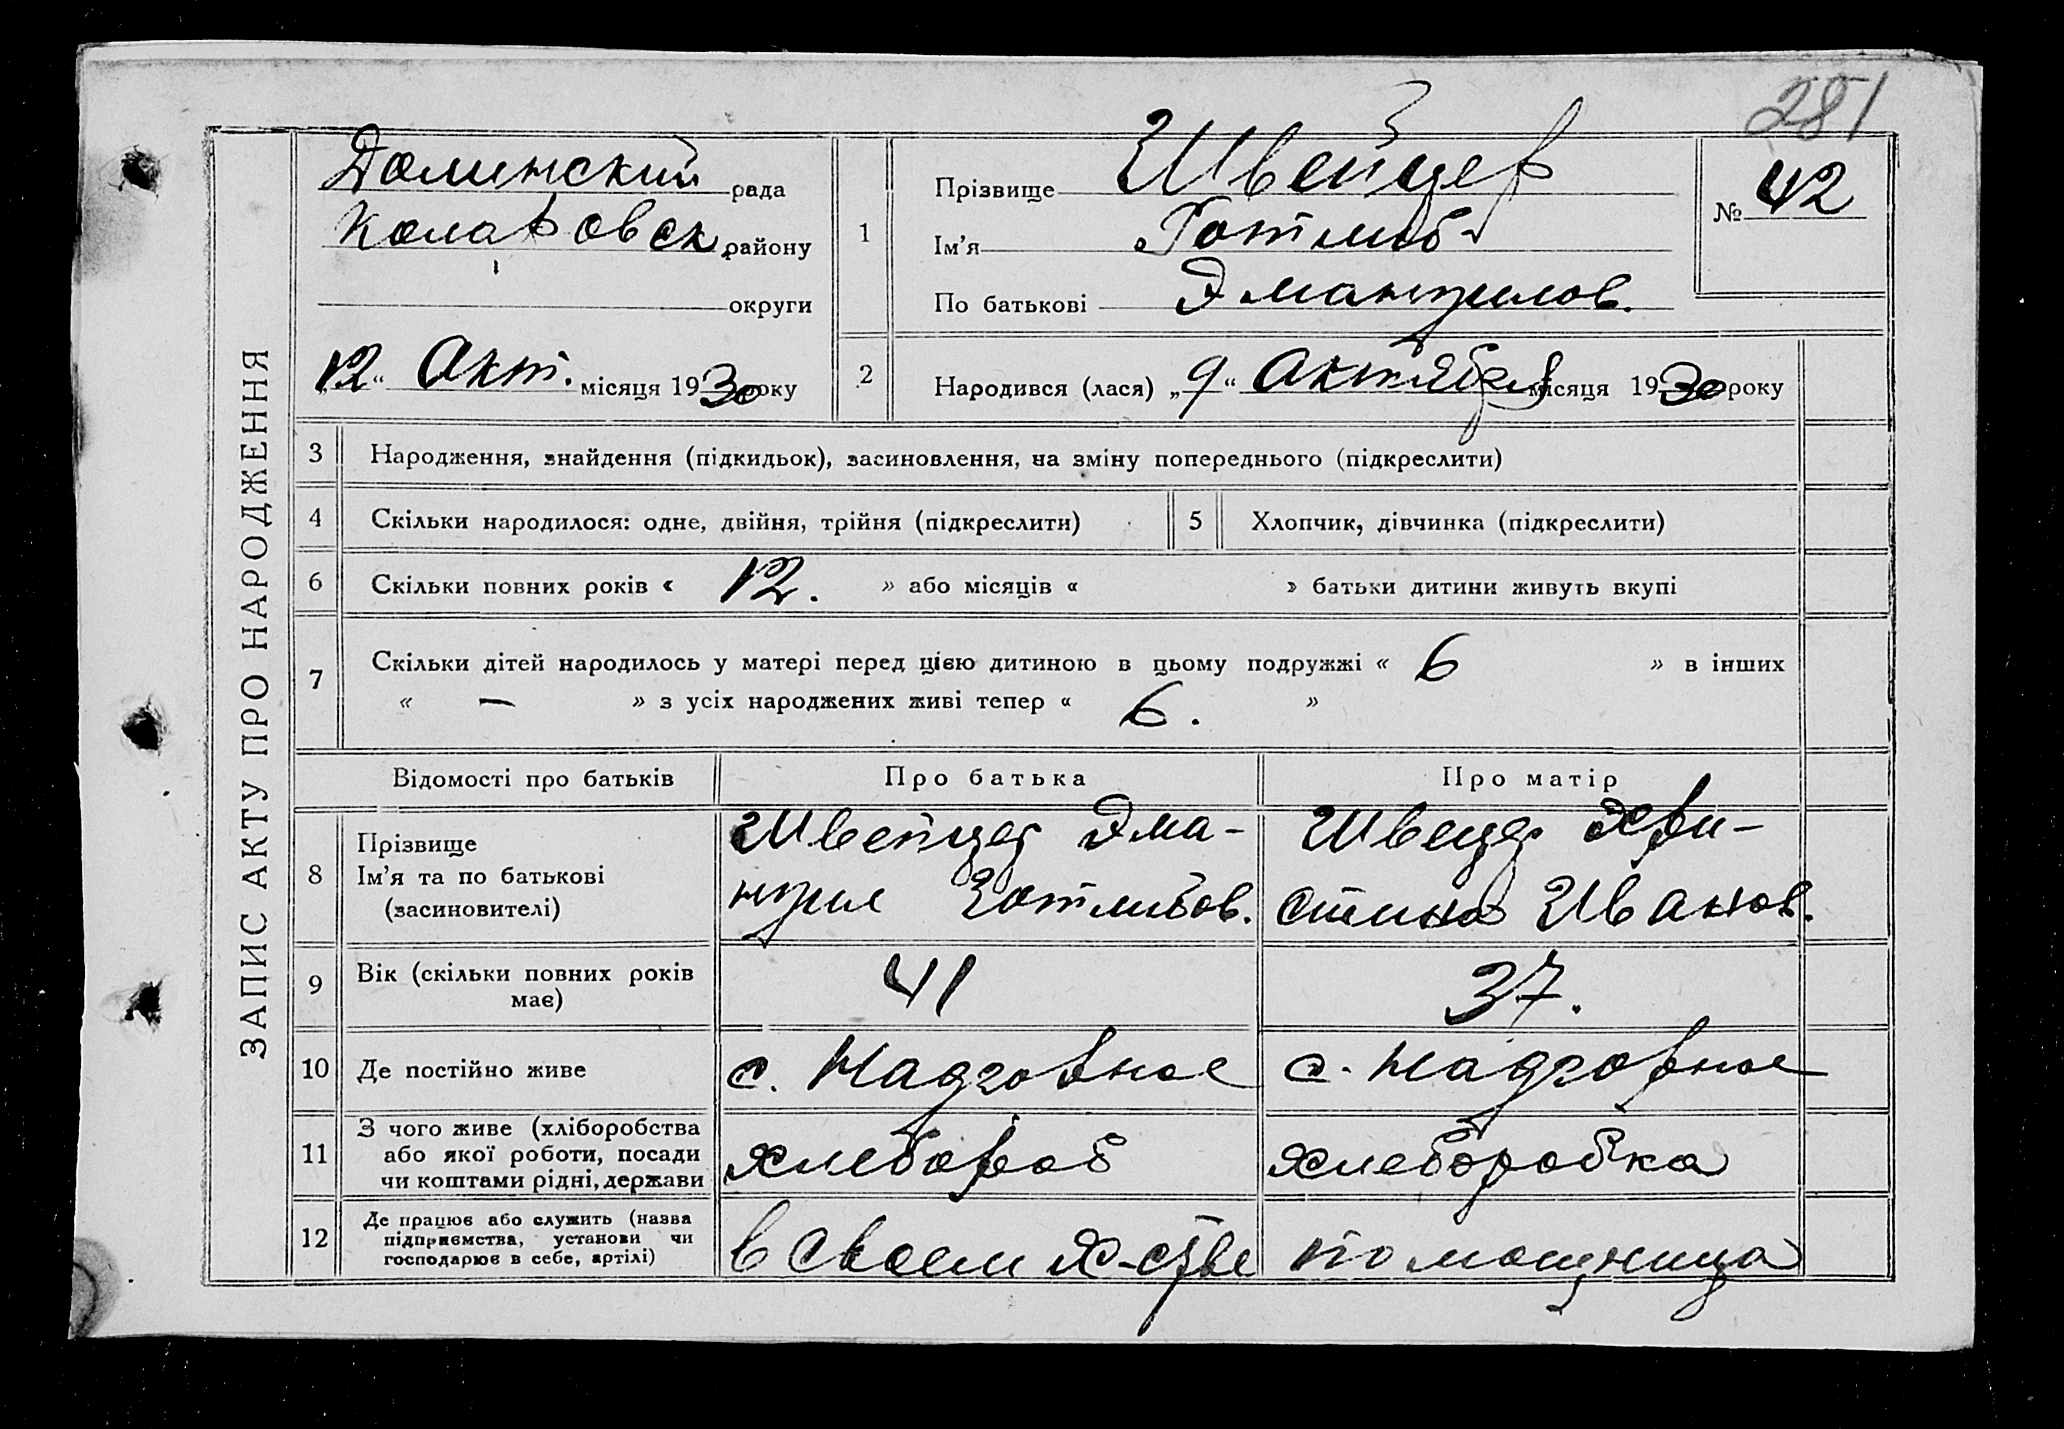 281
ЗАПИС АКТУ ПРО НАРОДЖЕННЯ
Долинский рада
Коларовск. району
округи
„12“ Окт. місяця 1930 року
1
Прізвище Швейцер
Ім’я Готлиб
По батькові Эмануилов.
№ 42
2
Народився (лася) „9“ Октября місяця 1930 року
3 Народження, знайдення (підкидьок), засиновлення, на зміну попереднього (підкреслити)
4 Скільки народилося: одне, двійня, трійня (підкреслити)
5 Хлопчик, дівчинка (підкреслити)
6 Скільки повних років « 12. » або місяців « » батьки дитини живуть вкупі
7 Скільки дітей народилось у матері перед цією дитиною в цьому подружжі « 6 » в інших
« — » з усіх народжених живі тепер « 6. »
Відомості про батьків
Про батька
Про матір
8 Прізвище
Ім’я та по батькові
(засиновителі)
Швейцер Эма-
нуил Готлибов.
Швецер Хри-
стина Иванов.
9 Вік (скільки повних років
має)
41
37.
10 Де постійно живе
с. Надгорное
с. Надгорное
11 З чого живе (хліборобства
або якої роботи, посади
чи коштами рідні, держави
хлебороб
хлеборобка
12 Де працює або служить (назва
підприємства, установи чи
господарює в себе, артілі)
в своем х-стве
помощница